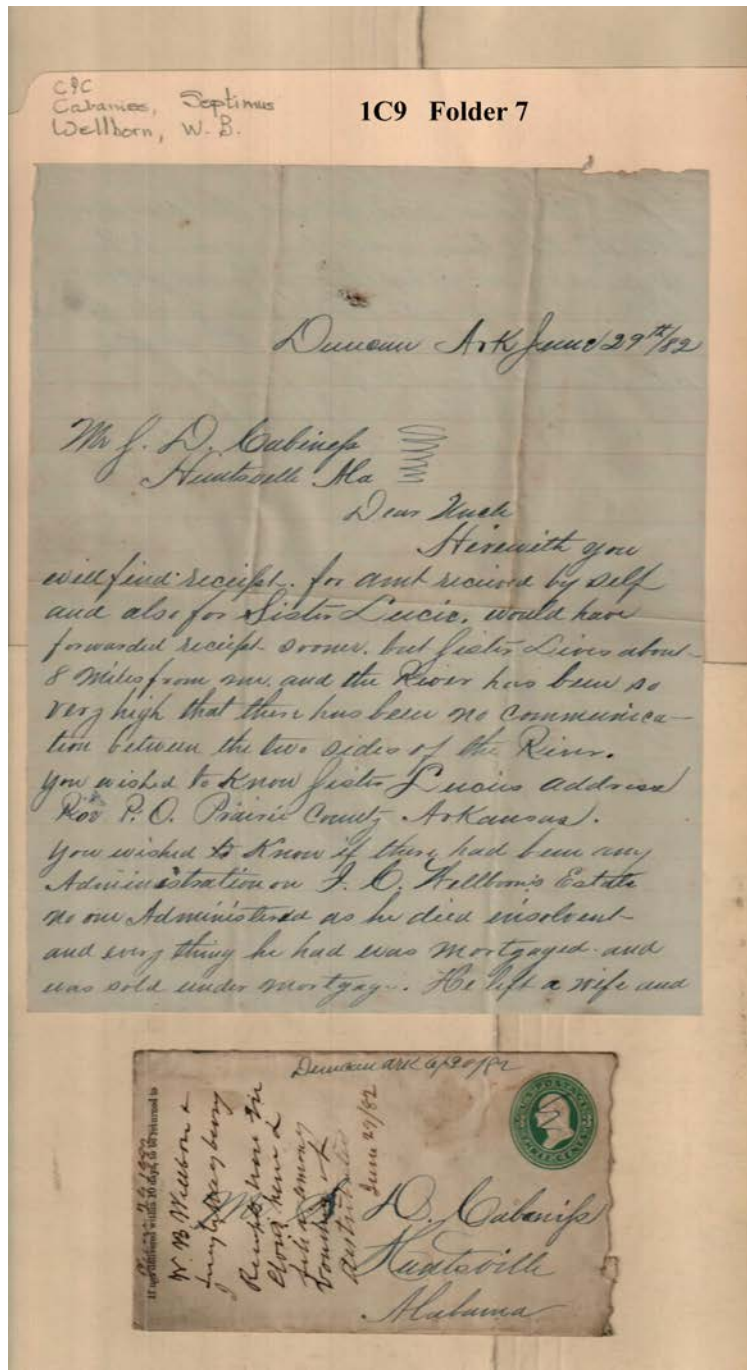 CPC
Cabaniss, Septimus
Wellborn, W. B.
1C9 Folder 7
Duncan Ark June 29th/82
Mr J. D. Cabiness
Huntsville Ala
Dear Uncle
Herewith you
will find receipt. for amt recieved by self
and also for Sister Lucie. would have
forwarded receipt sooner. but Sister Lives about
8 Miles from me. and the River has been so
very high that there has been no communica-
tion between the two sides of the River.
You wished to Know Sister Lucies address
P. O. Prairie County Arkansas.
You wished to Know if there had been any
Administration on J. C. Wellborn's Estate
no one Administered as he died insolvent
and every thing he had was mortgaged. and
was sold under mortgage. He left a wife and
Duncan Ark 6/30/82
U.S. POSTAGE
THREE CENTS
If not delivered within 10 days, to be returned to
W. B. Wellborn &
Receipts
June 29/82
D. Cabiniss
Huntsville
Alabama